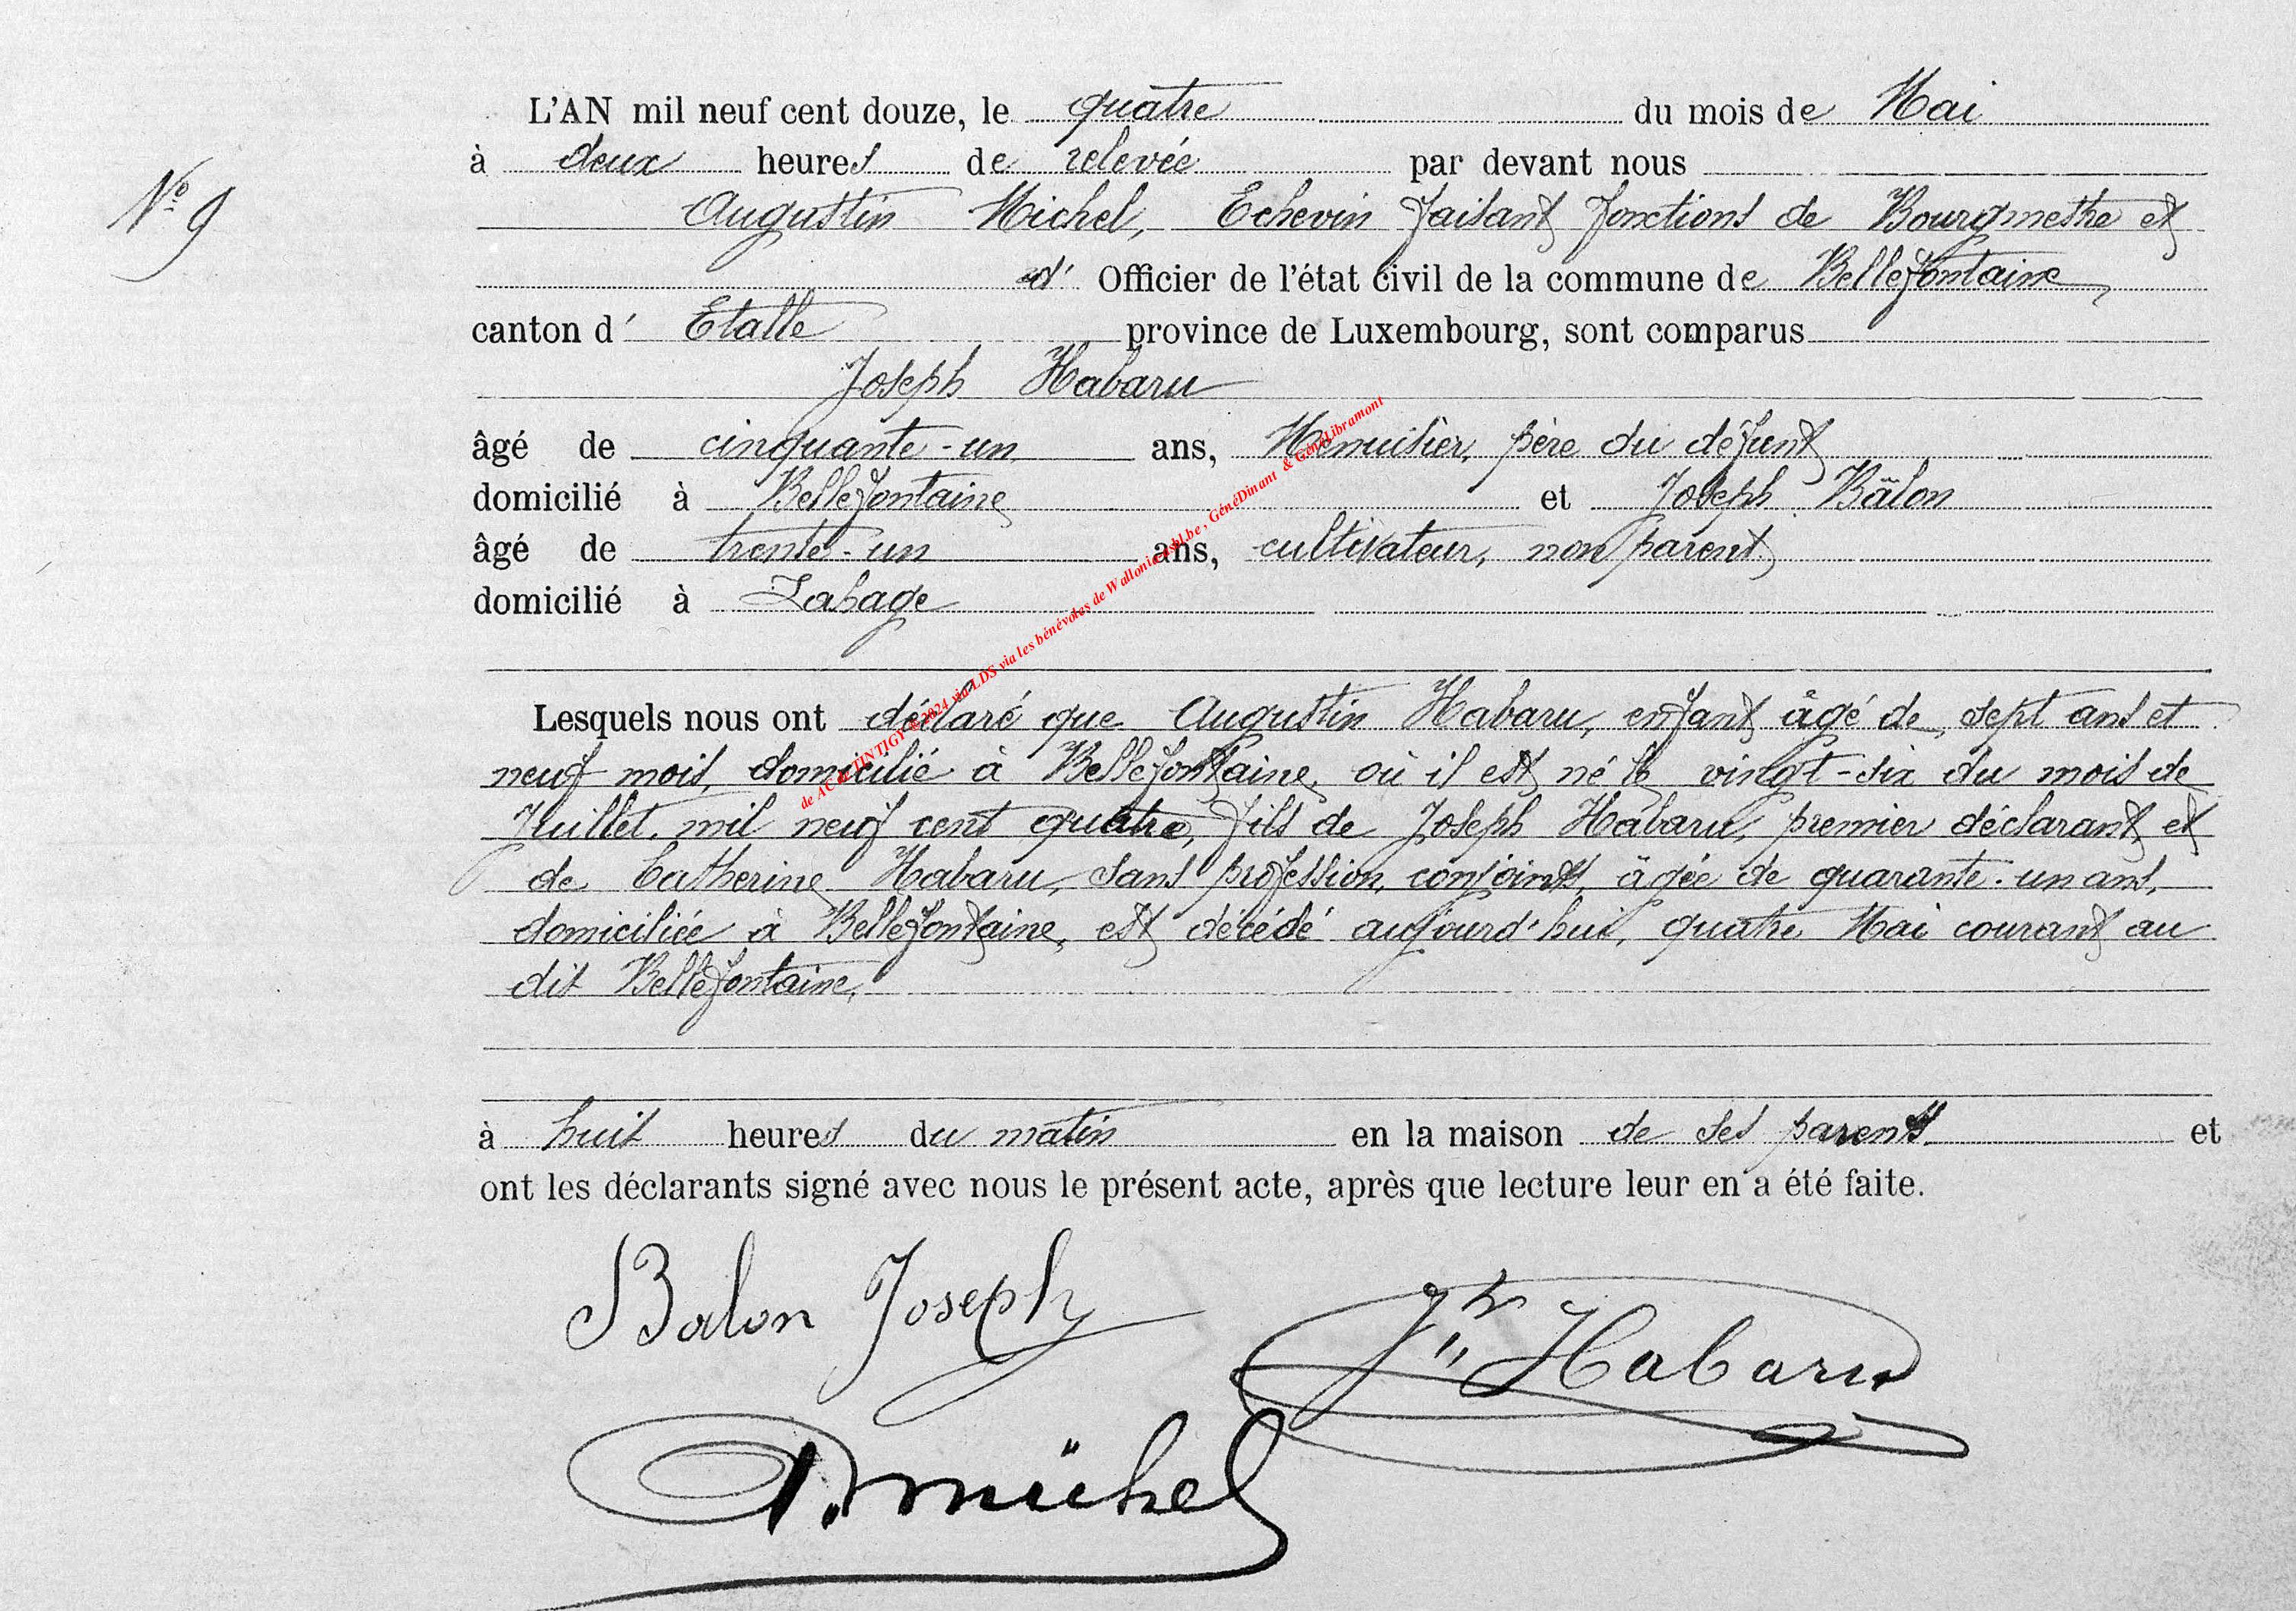 L'AN mil neuf cent douze, le quatre du mois de Mai
à deux heures de relevée par devant nous
N° 9
Augustin Michel, Echevin faisant fonctions de Bourgmestre et
d' Officier de l'état civil de la commune de Bellefontaine,
canton d' Etalle province de Luxembourg, sont comparus
Joseph Habaru
âgé de cinquante-un ans, Menuisier, père du défunt
domicilié à Bellefontaine et Joseph Balon
âgé de trente-un ans, cultivateur, non parent,
domicilié à Lahage
Lesquels nous ont déclaré que Augustin Habaru, enfant âgé de sept ans et
neuf mois, domicilié à Bellefontaine, où il est né le vingt-six du mois de
Juillet, mil neuf cent quatre, fils de Joseph Habaru, premier déclarant, et
de Catherine Habaru, sans profession, conjoints, âgée de quarante-un ans,
domiciliée à Bellefontaine, est décédé aujourd'hui, quatre Mai courant au
dit Bellefontaine,
à huit heures du matin en la maison de ses parents et
ont les déclarants signé avec nous le présent acte, après que lecture leur en a été faite.
Balon Joseph
Jh Habaru
A. Michel
via LDS via les bénévoles de Wallonie-asbl.be, GénéDinant & GénéLibramont